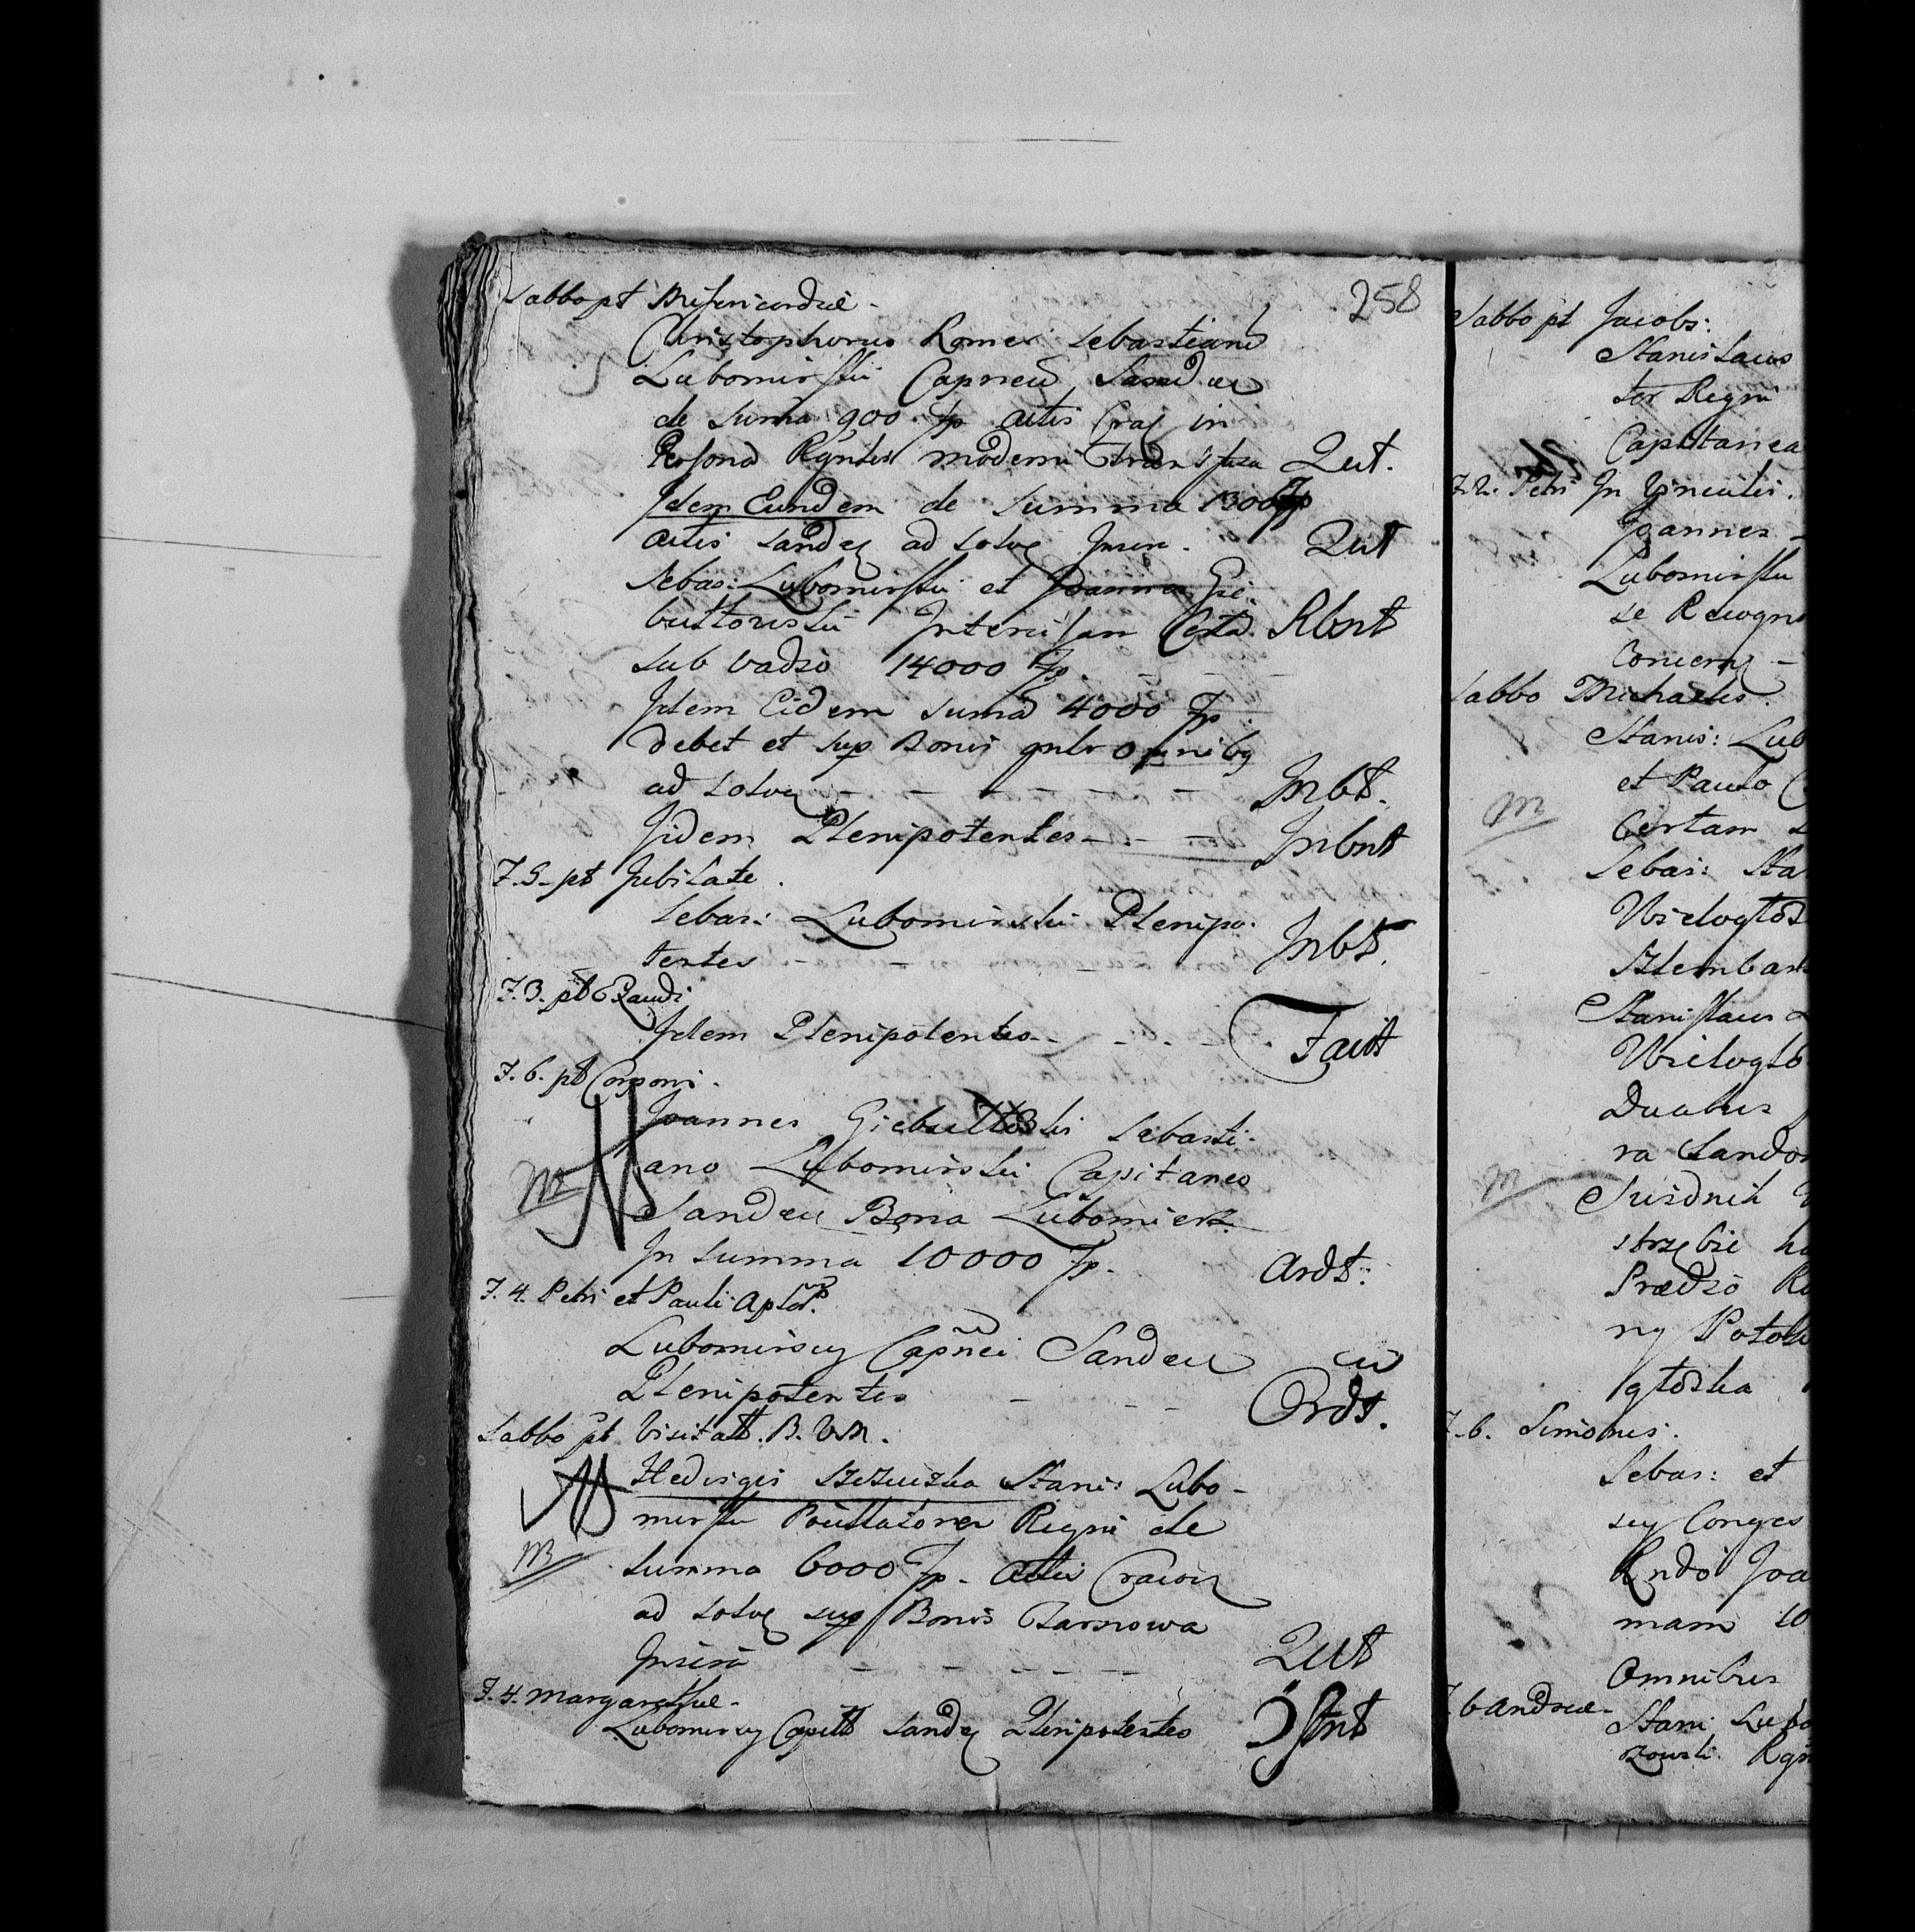 258
Sabbo pt Misericordiæ -
Christophorus Romer Sebastianū
Lubomirski Capneū Sandec
de Suma 900 fp actis Crac in
Persona Rgntis moderni transfusa Qut.
Idem Eundem de Summa 1300 fp
actis Sandec ad Solve Inscr. Qut
Sebas: Lubomirski et Joannes Gie-
bułtowski Intercisam Certā Rbnt
sub vadio 14000 fp. - - -
Idem Eidem Sumā 4000 fp
debet et sup Bonis gnlr omnibg
ad Solve - - - - - Inbt.
Iidem Plenipotentes - - - Inbnt
F. 5. pt Jubilate.
Sebas: Lubomirski Plenipo-
tentes - - - Inbt.
F. 3. pt Exaudi
Idem Plenipotentes - - - - Facit
F. 6. pt Corporis.
Joannes Giebułtowski Sebasti-
ano Lubomirski Capitaneo
Sandec Bona Lubomierz
In Summa 10000 fp. Ardt:
F. 4. Petri et Pauli Aplor.
Lubomirscy Capnei Sandec
Plenipotentes - - - Ordt.
Sabbo pt Visitatt. B. V. M.
Hedvigis Szczucka Stani: Lubo-
mirski Pocillatorem Regni de
Summa 6000 fp. Actis Cracov
ad Solve sup Bonis Tarnowa
Inscri - - - - - Qut
F. 4. Margarethæ -
Lubomirscy Capitt Sandec Plenipotentes
Sabbo pt Jacobi:
Stanislaus
tor Regni
Capitanea
F. 2. Petri In Vinculis.
Joannes -
Lubomirski
se Recogno
Concern -
Sabbo Michaelis.
Stanis: Lub
et Paulo
Certam
Sebas: Sta
Wielogłos
Sztembark
Stanislaus
Wielogło
Duabus
ra Sandom
Suidnik
strzębie
Prædio
ny Potok
głoska
F. 6. Simonis.
Sebas: et
scy Conges
Rndo Joa
mam 10
Omnibus
F. 6 Andreæ -
Stani Lubo
zowski. Rgn